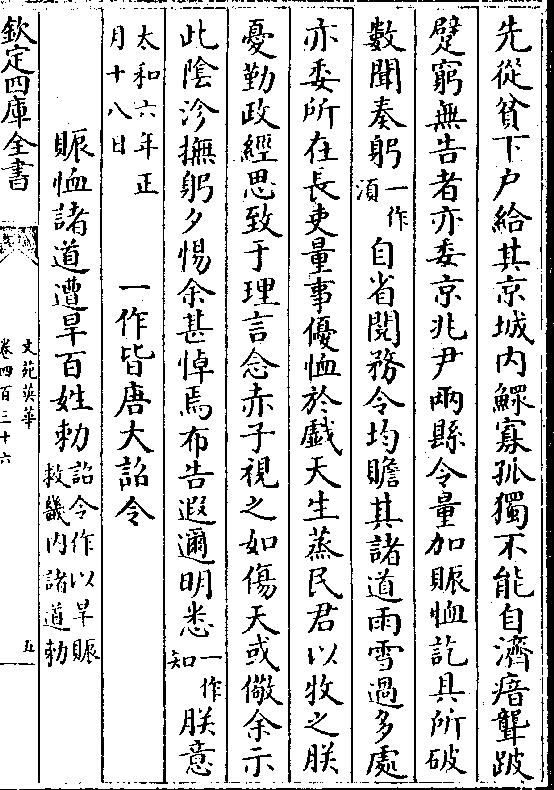 先從貧下户給其京城内鰥寡孤獨不能自濟瘖聾跛
躄窮無告者亦委京兆尹兩縣令量加賑恤訖具所破
數聞奏躬一作須自省閱務令均贍其諸道雨雪過多處
亦委所在長吏量事優恤於戲天生蒸民君以牧之朕
憂勤政經思致于理言念赤子視之如傷天或儆余示
此陰沴撫躬夕惕余甚悼焉布告遐邇明悉一作知朕意
太和六年正月十八日 一作皆唐大詔令
賑恤諸道遭旱百姓勅詔令作以旱賑救畿内諸道勅
欽定四庫全書
文苑英華
卷四百三十六
五